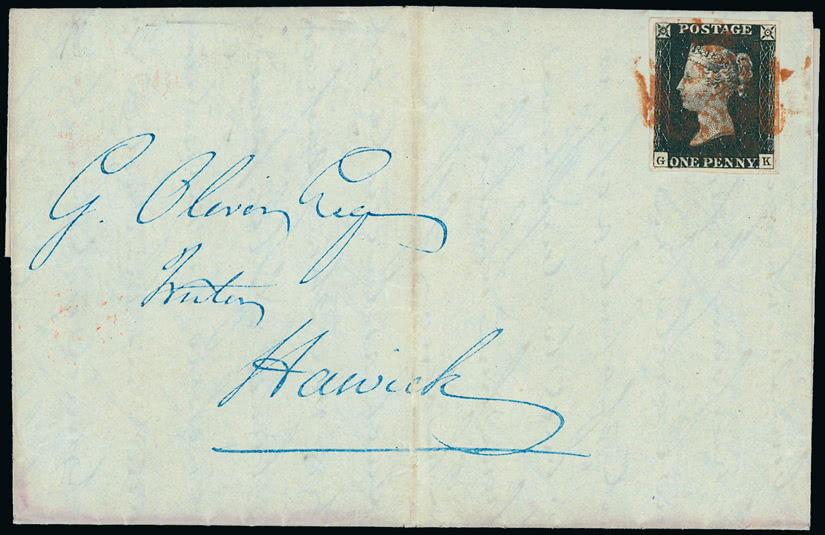 POSTAGE
G ONE PENNY K
G. Oliver Esqr
Writer
Hawick